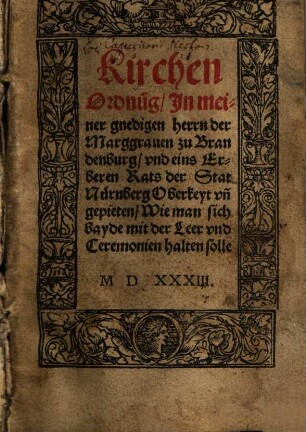 Kirchen
Ordnūg / In mei-
ner gnedigen herrn der
Marggrauen zu Bran
denburg / vnd eins Er-
beren Rats der Stat
Nürnberg Oberkeyt vn̄
gepieten / Wie man sich
bayde mit der Leer vnd
Ceremonien halten solle
M D XXXIII.